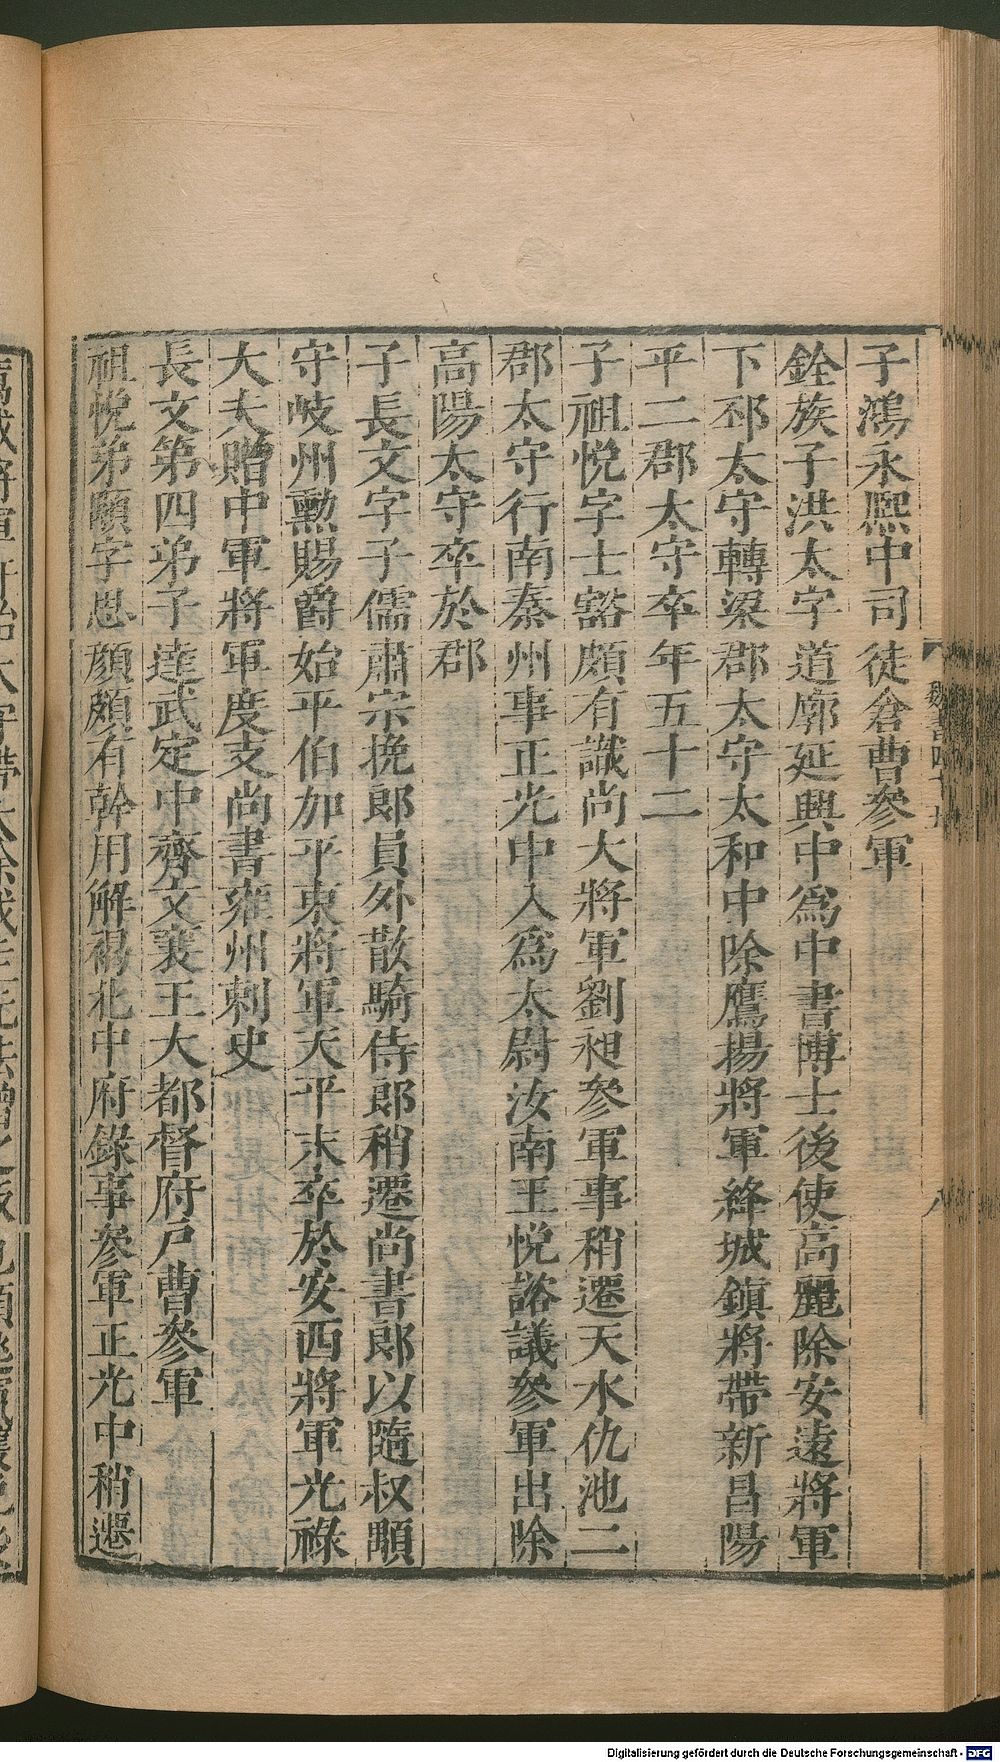 子鴻永熙中司徒倉曹參軍
銓族子洪太字道廓延興中爲中書博士後使高麗除安遠將軍
下邳太守轉梁郡太守太和中除鷹揚將軍絳城鎮將帶新昌陽
平二郡太守卒年五十二
子祖悅字士豁頗有識尚大將軍劉昶參軍事稍遷天水仇池二
郡太守行南秦州事正光中入爲太尉汝南王悅諮議參軍出除
高陽太守卒於郡
子長文字子儒肅宗挽郎員外散騎侍郎稍遷尚書郎以隨叔顒
守岐州勳賜爵始平伯加平東將軍天平末卒於安西將軍光祿
大夫贈中軍將軍度支尚書雍州刺史
長文第四弟子達武定中齊文襄王大都督府戶曹參軍
祖悅弟頤字思顏頗有幹用解褐北中府錄事參軍正光中稍遷
魏書四十九
八
Digitalisierung gefördert durch die Deutsche Forschungsgemeinschaft - DFG